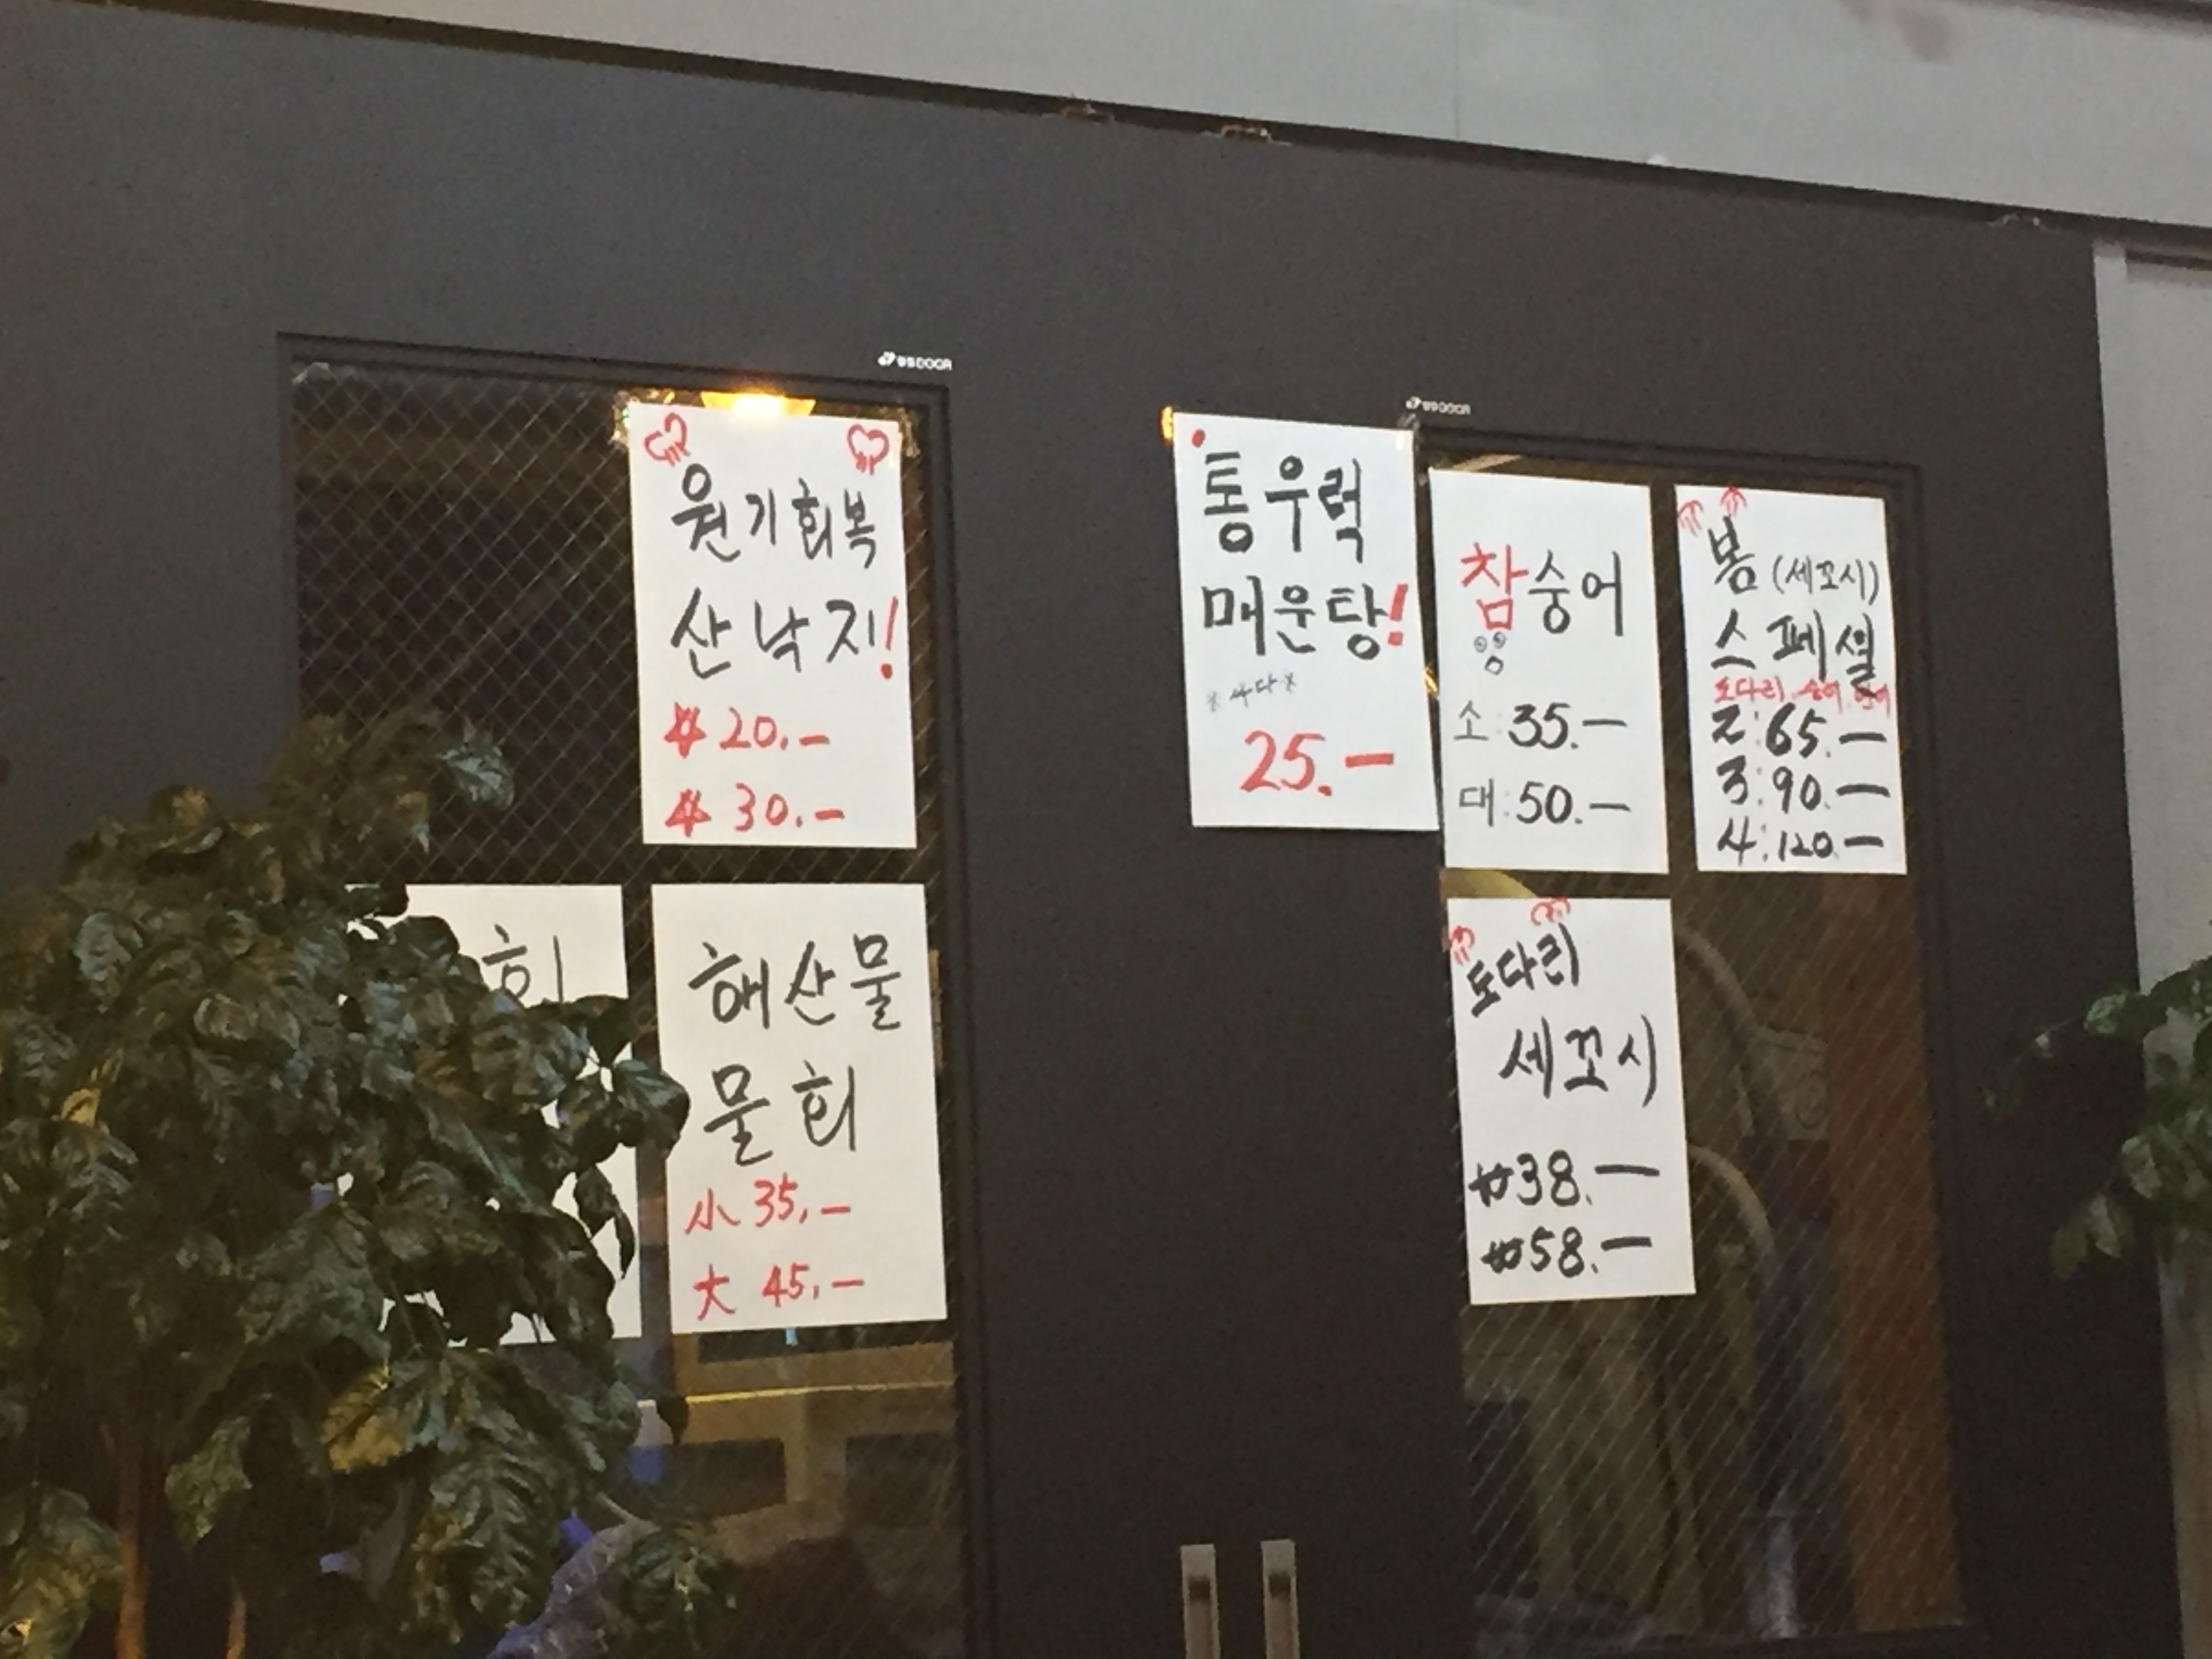 원기회복
산낙지!
20.-
30.-
회
해산물
물회
小 35.-
大 45.-
통우럭
매운탕!
*싸다*
25.-
참숭어
소:35.-
대:50.-
봄(세꼬시)
스페셜
도다리 숭어
2:65.-
3:90.-
4:120.-
도다리
세꼬시
38.-
58.-